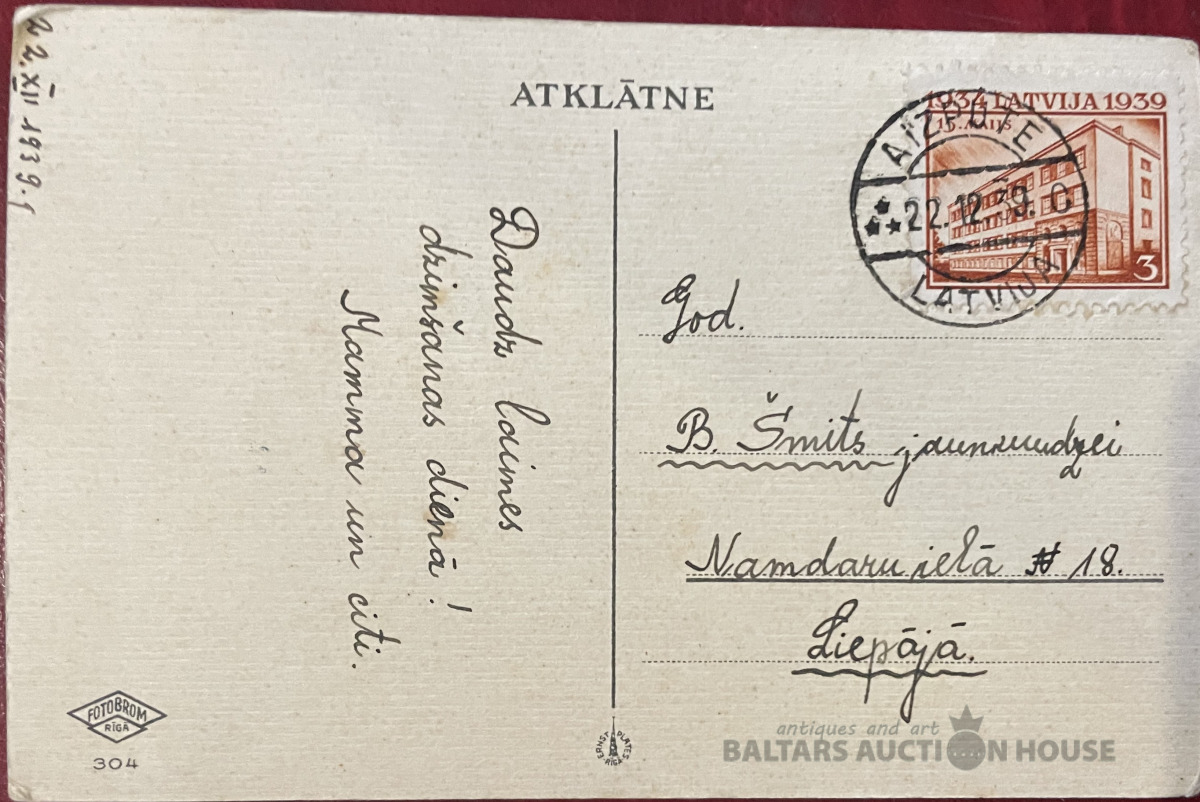 22. XII 1939.
ATKLĀTNE
1934 LATVIJA 1939
15. MAIJS
3
AIZPUTE
22.12.39. C
LATVIJA
Daudz laimes
dzimšanas dienā!
Mamma un citi.
God.
B. Šmits jaunkundzei
Namdaru ielā № 18.
Liepājā.
FOTOBROM
RĪGĀ
304
ERNST PLATES
RĪGĀ
antiques and art
BALTARS AUCTION HOUSE